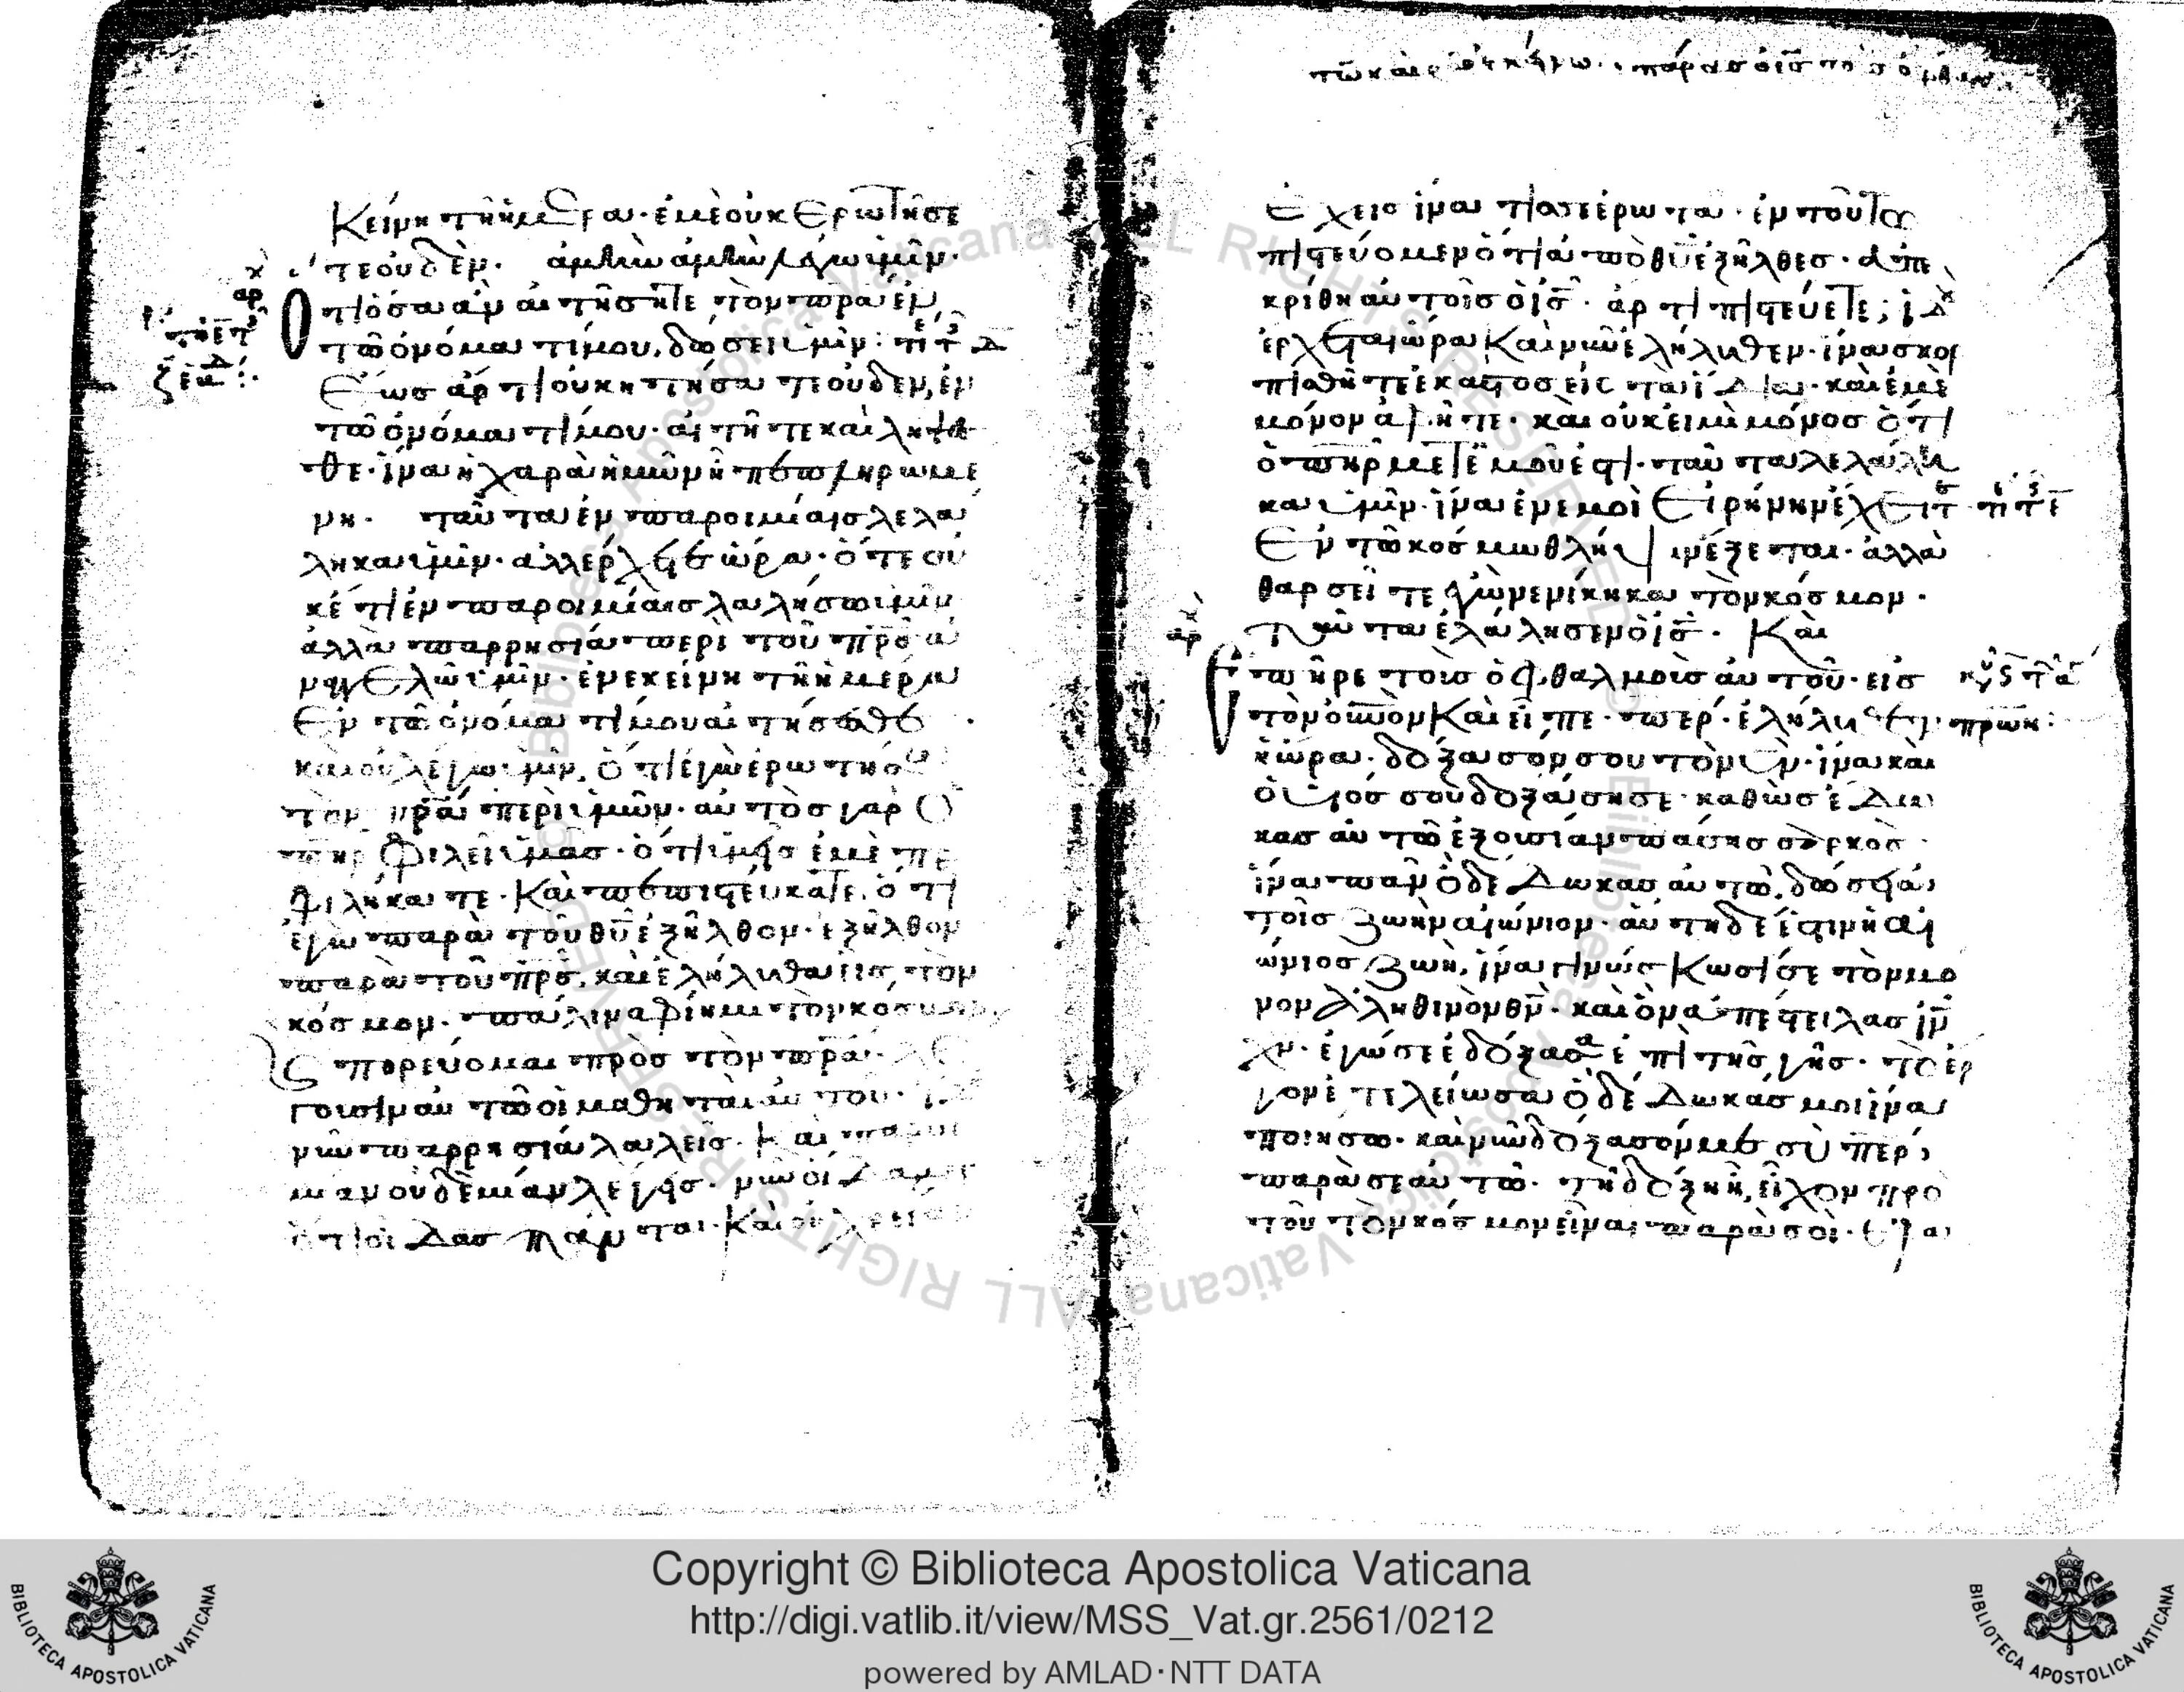 Κείνη τῆ ἡμέρα· ἐμὲ οὐκ ἐρωτήσε
τε οὐδέν. ἀμὴν ἀμὴν λέγω ὑμῖν·
Ὅτι ὅσα ἂν αἰτήσητε τὸν πρα ἐν
τῶ ὀνόματί μου, δώσει ὑμῖν:
Ἕως ἄρτι οὐκ ἠτήσατε οὐδὲν, ἐν
τῶ ὀνόματί μου· αἰτῆτε καὶ λήψε
σθε· ἵνα ἡ χαρὰ ἡμῶν ἦ πεπληρωμέ
νη. ταῦτα ἐν παροιμίαις λελά
ληκα ὑμῖν· ἀλλ' ἔρχεται ὥρα· ὅτε οὐ
κέτι ἐν παροιμίαις λαλήσω ὑμῖν
ἀλλὰ παρρησία περὶ τοῦ πρσ ἀ
ναγγελῶ ὑμῖν· ἐν ἐκείνη τῆ ἡμέρα
Ἐν τῶ ὀνόματί μου αἰτήσασθε
καὶ οὐ λέγω ὑμῖν, ὅτι ἐγὼ ἐρωτήσω
τὸν πρα περὶ ὑμῶν· αὐτὸς γὰρ ὁ
πηρ φιλεῖ ὑμᾶς· ὅτι ὑμεῖς ἐμὲ πε
φιλήκατε· Καὶ πεπιστεύκατε, ὅτι
ἐγὼ παρὰ τοῦ θυ ἐξῆλθον· ἐξῆλθον
παρὰ τοῦ πρσ, καὶ ἐλήλυθα εἰς τὸν
κόσμον· πάλιν ἀφίημι τὸν κόσμον,
πορεύομαι πρὸς τὸν πρα·
γουσιν αὐτῶ οἱ μαθηταὶ αὐτου·
νῦν παρρησία λαλεῖς· Καὶ παροι
μίαν οὐδεμίαν λέγεις· νῦν οἴδαμεν
ὅτι οἶδας πάντα· Καὶ οὐ χρείαν
ἔχεις ἵνα τίς σε ἐρωτᾶ· ἐν τούτω
πιστεύομεν ὅτι ἀπὸ θυ ἐξῆλθες· ἀπε
κρίθη αὐτοῖς ὁ ις· ἄρτι πιστεύετε; ἰδ
ἔρχεται ὥρα Καὶ νῦν ἐλήλυθεν· ἵνα σκορ
πισθῆτε ἕκαστος εἰς τὰ ἴδια· καὶ ἐμὲ
μόνον ἀφῆτε· καὶ οὐκ εἰμὶ μόνος ὅτι
ὁ πηρ μετ' ἐμοῦ ἐστι· ταῦτα λελάλη
κα ὑμῖν· ἵνα ἐν ἐμοὶ εἰρήνην ἔχειτε
Ἐν τῶ κόσμω θλῖψιν ἕξεται· ἀλλὰ
θαρσεῖτε ἐγὼ νενίκηκα τὸν κόσμον·
Ταῦτα ἐλάλησεν ὁ ις· Καὶ
ἐπῆρε τοὺς ὀφθαλμοὺς αὐτοῦ· εἰς
τὸν οὐνον Καὶ εἶπε· περ· ἐλήλυθεν
ἡ ὥρα· δόξασόν σου τὸν υν· ἵνα καὶ
ὁ υἱός σου δοξάση σε· καθὼς ἔδω
κας αὐτῶ ἐξουσίαν πάσης σαρκὸς·
ἵνα πᾶν ὃ δέδωκας αὐτῶ, δώσει αὐ
τοῖς ζωὴν αἰώνιον· αὕτη δέ ἐστιν ἡ αἰ
ώνιος ζωὴ, ἵνα γινώσκωσί σε τὸν μό
νον ἀληθινὸν θν· καὶ ὃν ἀπέστειλας ιν
χν· ἐγώ σε ἐδόξασα ἐπὶ τῆς γῆς· τὸ ἔρ
γον ἐτελείωσα ὃ δέδωκάς μοι ἵνα
ποιήσω· καὶ νῦν δόξασόν με σὺ περ,
παρὰ σεαυτῶ· τῆ δόξη ἧ, εἶχον πρὸ
τοῦ τὸν κόσμον εἶναι παρὰ σοί· ἐφα
Copyright © Biblioteca Apostolica Vaticana
http://digi.vatlib.it/view/MSS_Vat.gr.2561/0212
powered by AMLAD·NTT DATA
BIBLIOTECA APOSTOLICA VATICANA
BIBLIOTECA APOSTOLICA VATICANA